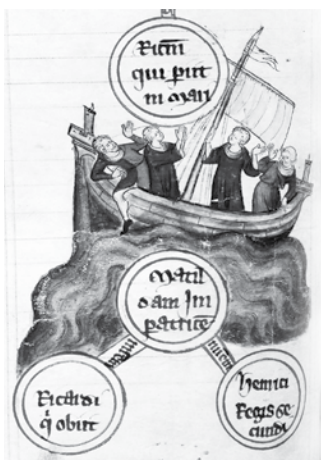 Ricm
qui piit
in mari
Matil
dam Im
patrice
Ricardi
q obiit
Henrici
Regis se
cundi